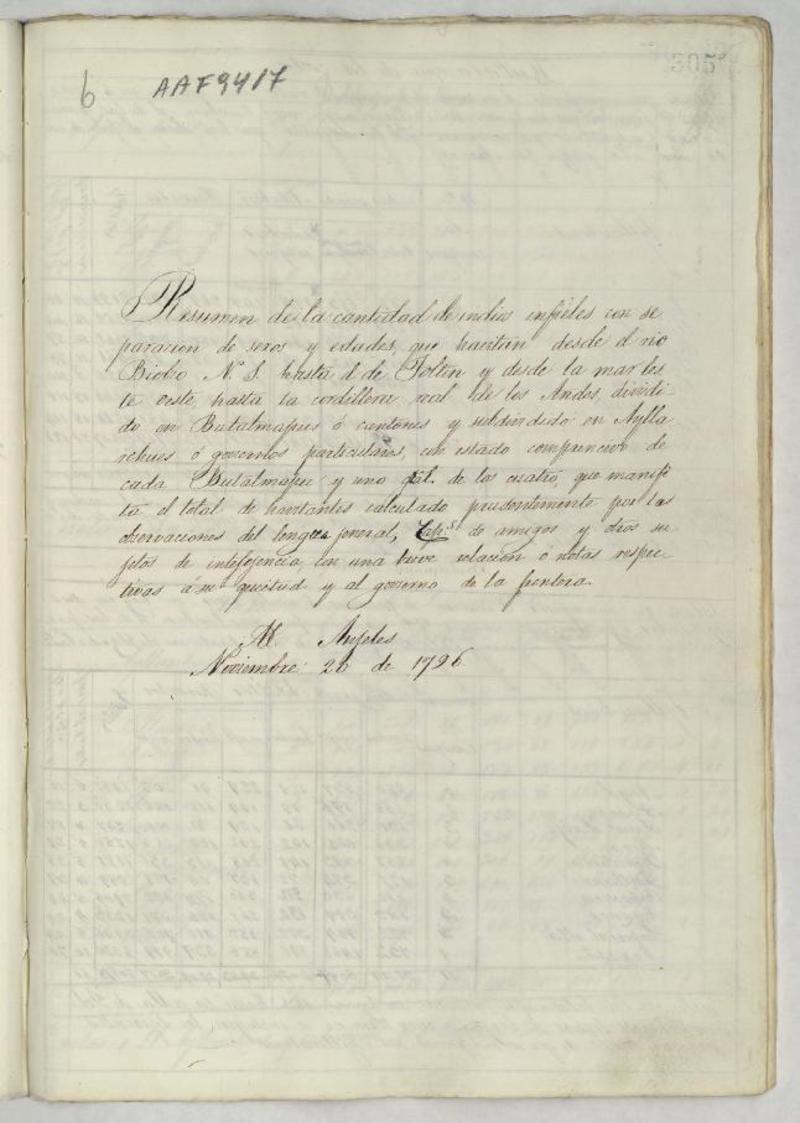 6 AAF9417
305
Resumen de la cantidad de indios infieles con se
paracion de secsos y edades, que havitan desde el rio
Biobo N. S. hasta el de Tolten y desde la mar les
te oeste hasta la cordillera real de los Andes, dividi-
do en Butalmapus ó cantones y subdividido en Aylla
rehues ó goviernos particulares, con estado comprencivo de
cada Butalmapu y uno gral. de los cuatro, que manifies
ta el total de havitantes calculado prudentemente por las
observaciones del lengua jeneral, Caps. de amigos y otros su
jetos de intelijencia, con una breve relacion ó notas respec-
tivas á su quietud y al govierno de la frontera.
Anjeles
Noviembre 26 de 1796